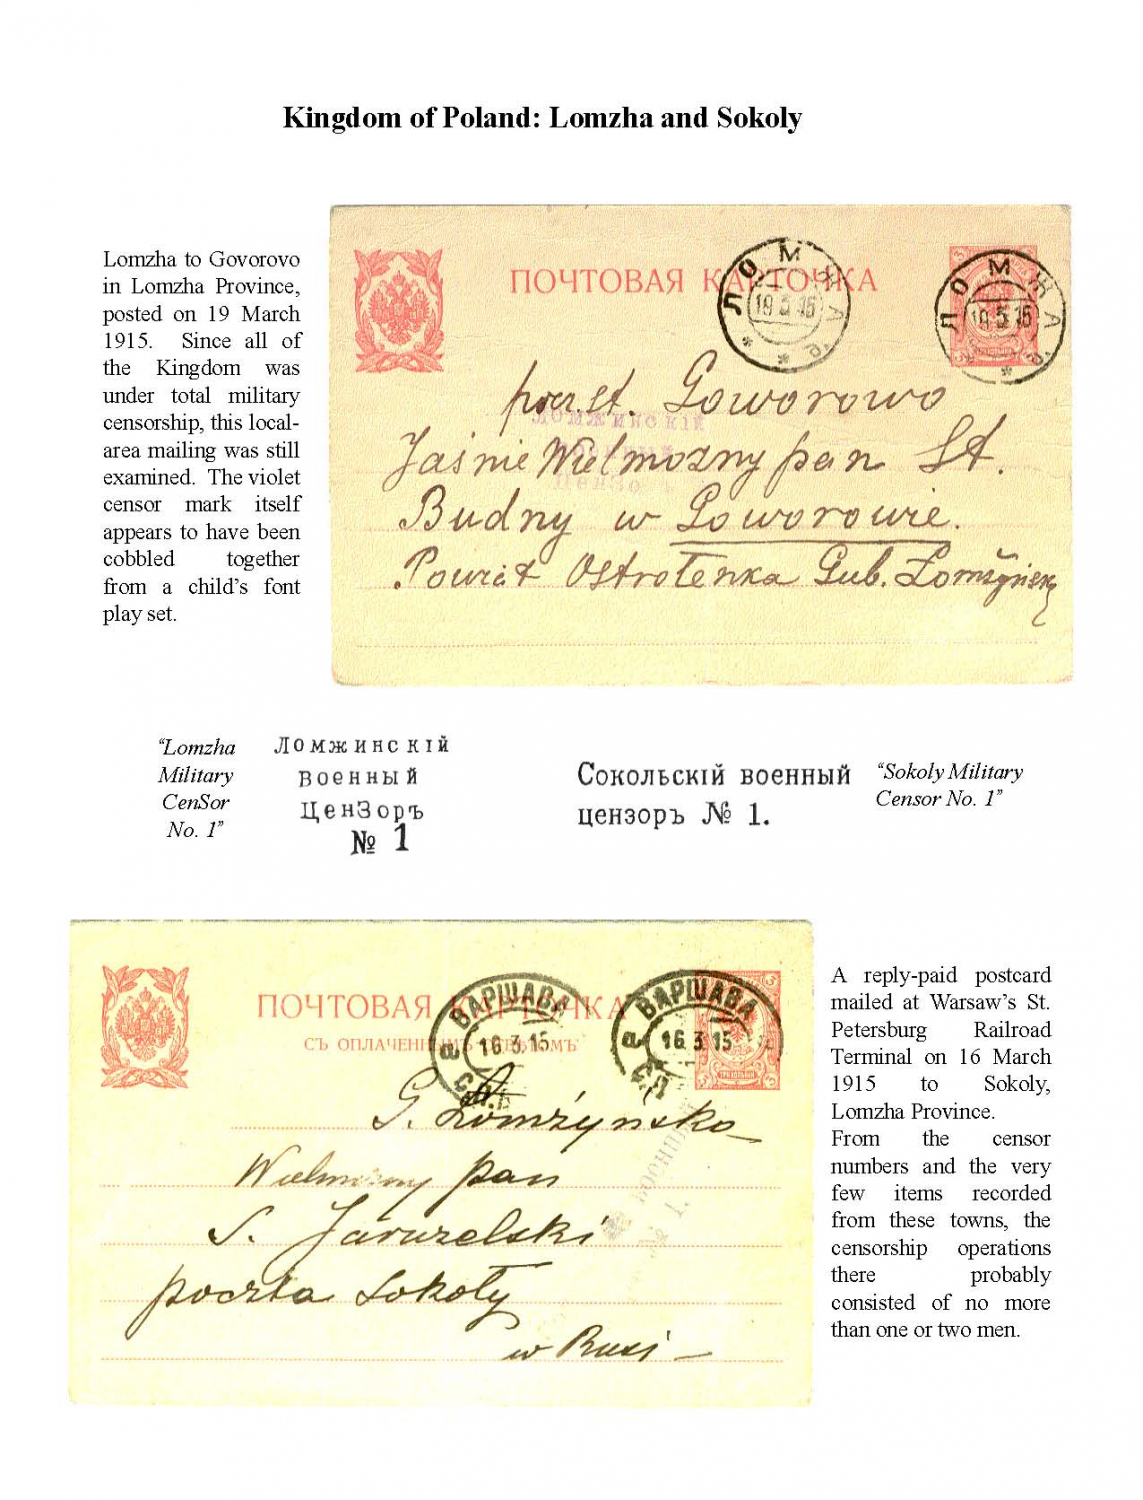 Kingdom of Poland: Lomzha and Sokoly
Lomzha to Govorovo
in Lomzha Province,
posted on 19 March
1915. Since all of
the Kingdom was
under total military
censorship, this local-
area mailing was still
examined. The violet
censor mark itself
appears to have been
cobbled together
from a child's font
play set.
ПОЧТОВАЯ КАРТОЧКА
ЛОМЖА
19 3 15
ЛОМЖА
19 3 15
Goworowo
Ломжинскій
Jaśnie Wielmożny pan St.
Budny w Goworowie.
Powiat Ostrołenka Gub. Łomżyńsk
“Lomzha
Military
CenSor
No. 1”
Ломжинскій
Военный
ЦенЗоръ
№ 1
Сокольскій военный
цензоръ № 1.
“Sokoly Military
Censor No. 1”
ПОЧТОВАЯ КАРТОЧКА
СЪ ОПЛАЧЕННЫМЪ ОТВѢТОМЪ
ВАРШАВА
16.3.15
ВАРШАВА
16.3.15
G. Łomżyńska
Wielmożny pan
S. Jaruzelski
poczta Sokoły
w Rusi
A reply-paid postcard
mailed at Warsaw's St.
Petersburg Railroad
Terminal on 16 March
1915 to Sokoly,
Lomzha Province.
From the censor
numbers and the very
few items recorded
from these towns, the
censorship operations
there probably
consisted of no more
than one or two men.